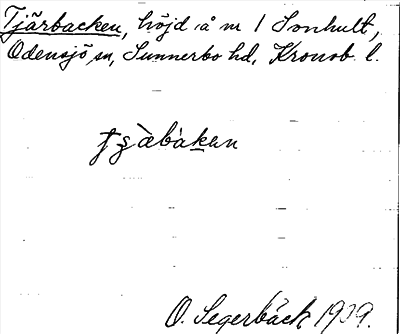 Tjärbacken, höjd å nr 1 Sonhult,
Odensjö sn, Sunnerbo hd, Kronob l.
O. Segerbäck 1939.